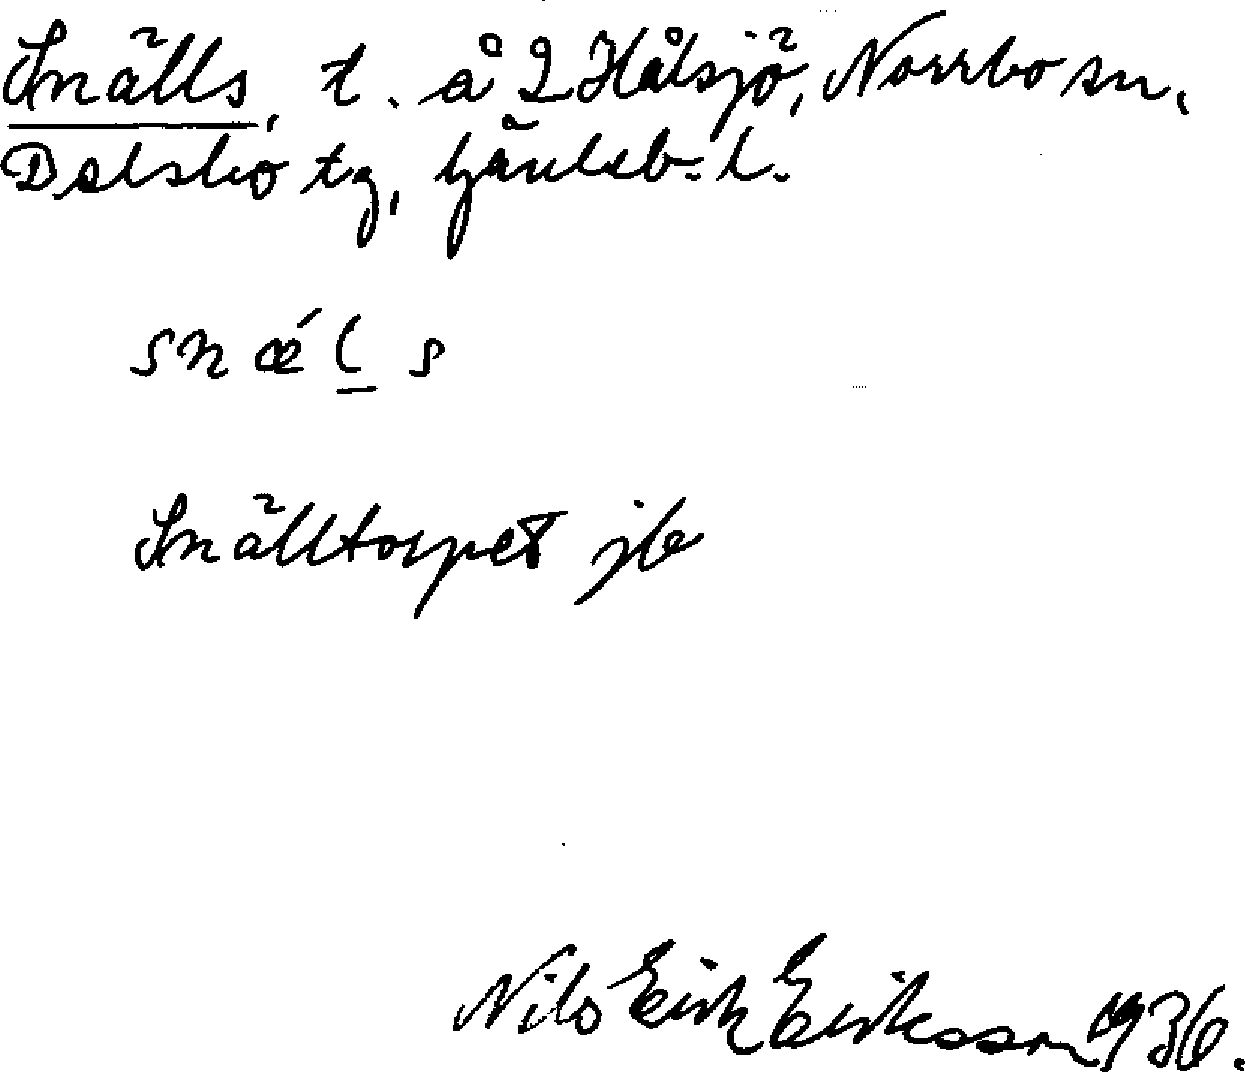 Snälls, t. å 2 Hålsjö, Norrbo sn,
Delsbo tg, Gävleb. l.
snǽl̲s
Snälltorpet jb
Nils Erik Eriksson 1936.